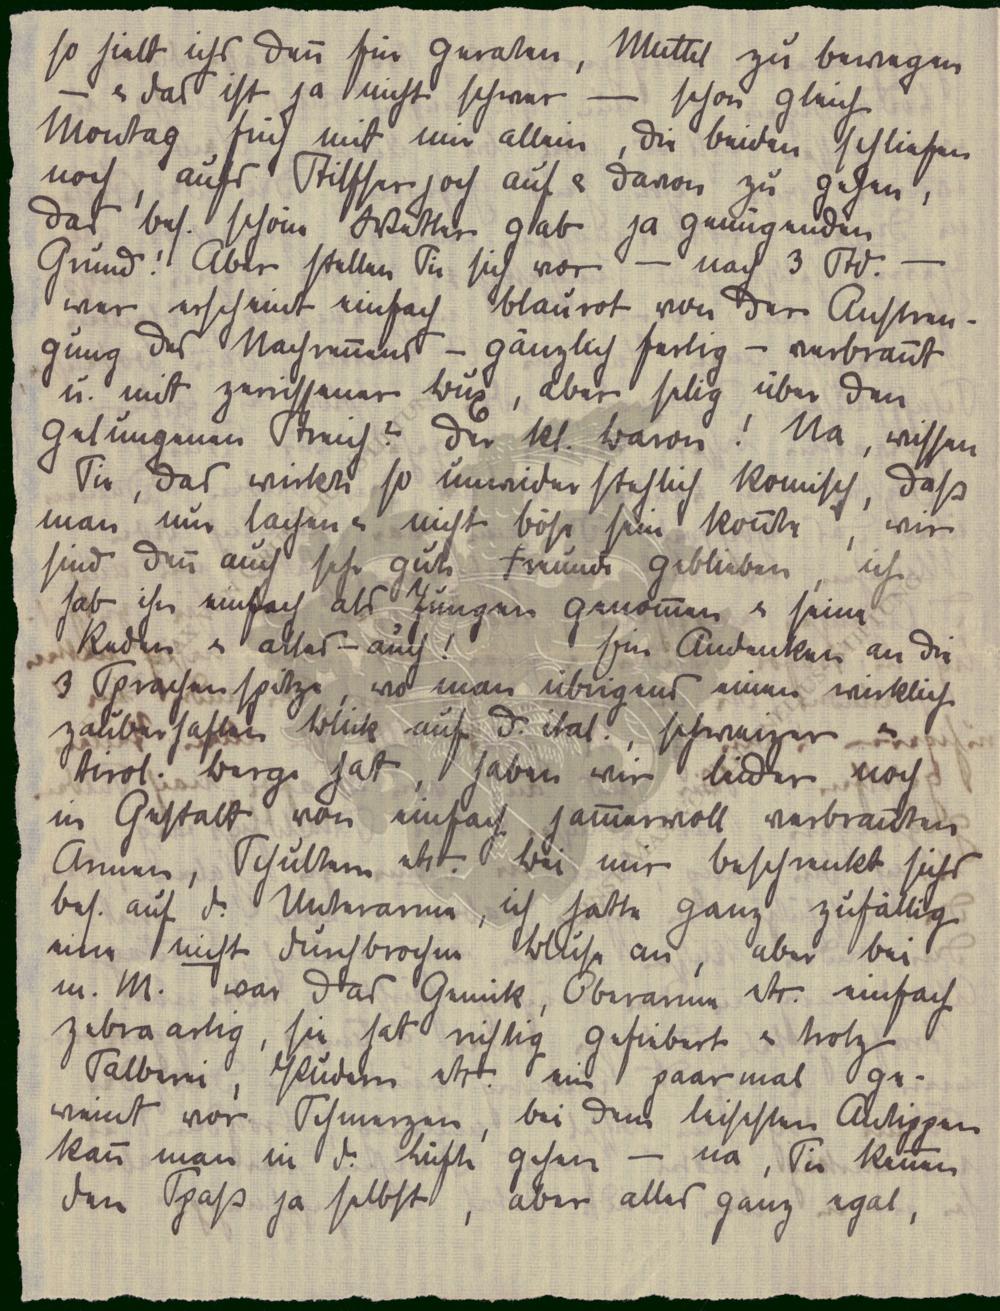 so hielt ichs deñ für geraten, Muttel zu bewegen
— & das ist ja nicht schwer — schon gleich
Montag früh mit mir allein, die beiden schliefen
noch, aufs Stilfserjoch auf & davon zu gehen,
das bes. schöne Wetter gab ja genügenden
Grund! Aber stellen Sie sich vor — nach 3 Std. —
wer erscheint einfach blaurot von der Anstren-
gung des Nachreñens – gänzlich fertig – verbrañt
u. mit zerrissener Bux, aber selig über den
gelungenen Streich? Der kl. Baron! Na, wissen
Sie, das wirkte so unwiderstehlich komisch, daß
man nur lachen & nicht böse sein koñte, wir
sind deñ auch sehr gute Freunde geblieben, ich
hab ihn einfach als Jungen genom̄en & seine
Reden & alles – auch! Ein Andenken an die
3 Sprachenspitze, wo man übrigens einen wirklich
zauberhaften Blick auf d. ital., schweizer &
tirol. Berge hat, haben wir leider noch
in Gestalt von einfach jam̄ervoll verbrañten
Armen, Schultern etc. Bei mir beschrenkt sichs
bes. auf d. Unterarme, ich hatte ganz zufällig
eine nicht durchbrochne Bluse an, aber bei
m. M. war das Genick, Oberarme etc. einfach
zebraartig, sie hat richtig gefiebert & trotz
Salberei, Pudern etc. ein paarmal ge-
weint vor Schmerzen, bei dem leisesten Antippen
kañ man in d. Lüfte gehen — na, Sie keñen
den Spaß ja selbst, aber alles ganz egal,